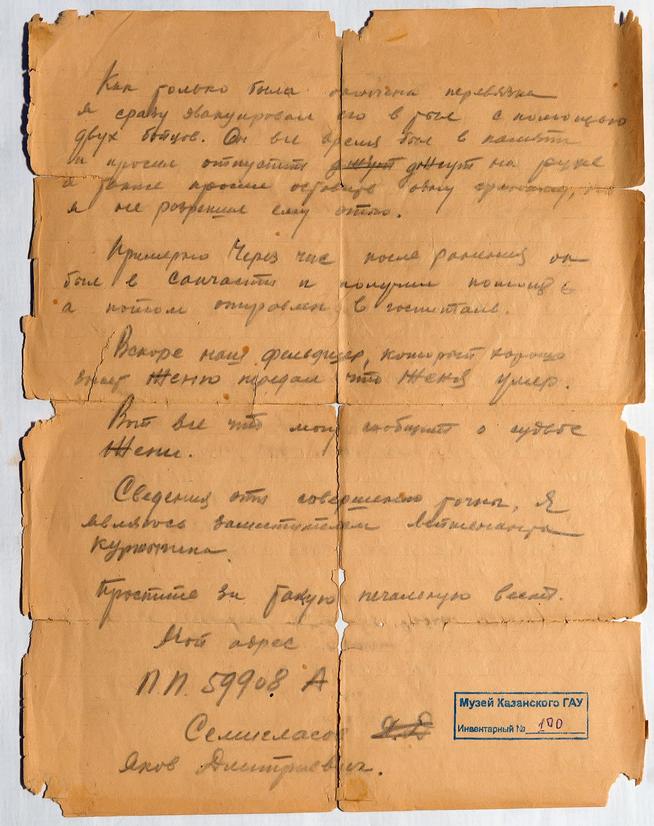 Как только была окончена перевязка
я сразу эвакуировал его в тыл с помощью
двух бойцов. Он все время был в памяти
и просил отпустить жгут на руке
а также просил оставить одну гранату, но
я не разрешил ему этого.
Примерно через час после ранения он
был в санчасти и получил помощь
а потом отправлен в госпиталь.
Вскоре наш фельдшер, который хорошо
знает Женю передал что Женя умер.
Вот все что могу сообщить о судьбе
Жени.
Сведения эти совершенно точны, Я
являюсь заместителем лейтенанта
Простите за такую печальную весть.
Мой адрес
П.П. 59908 А
Семисласов Я.Д
Яков Дмитриевич.
Музей Казанского ГАУ
Инвентарный № 100